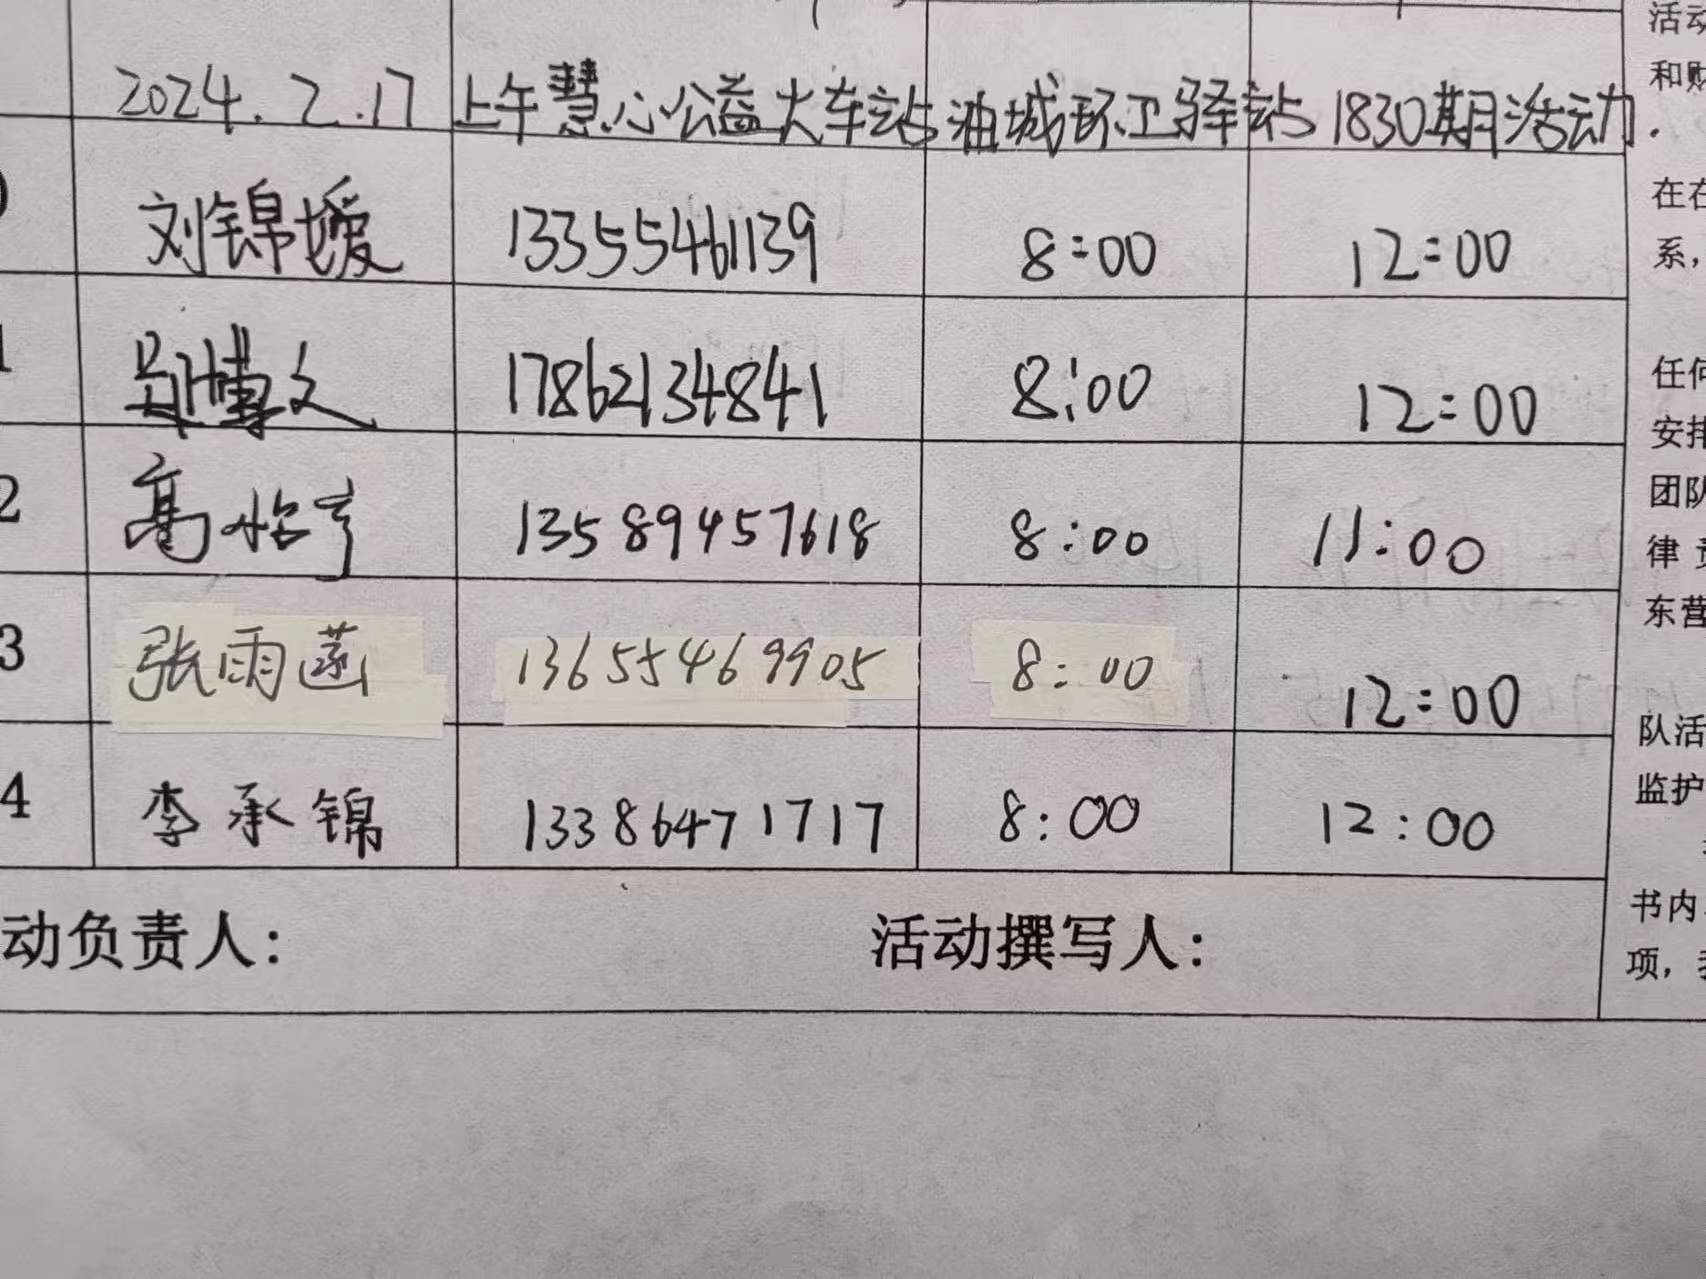 2024.2.17 上午慧心公益火车站油城环卫驿站1830期活动.
刘锦媛 13355461139 8:00 12:00
博文 17862134841 8:00 12:00
2 高怡亨 13589457618 8:00 11:00
3 张雨菡 13655469905 8:00 12:00
4 李承锦 13386471717 8:00 12:00
动负责人: 活动撰写人:
活动
和财
在在
系,
任何
安排
团队
律 责
东营
队活
监护
书内
项,